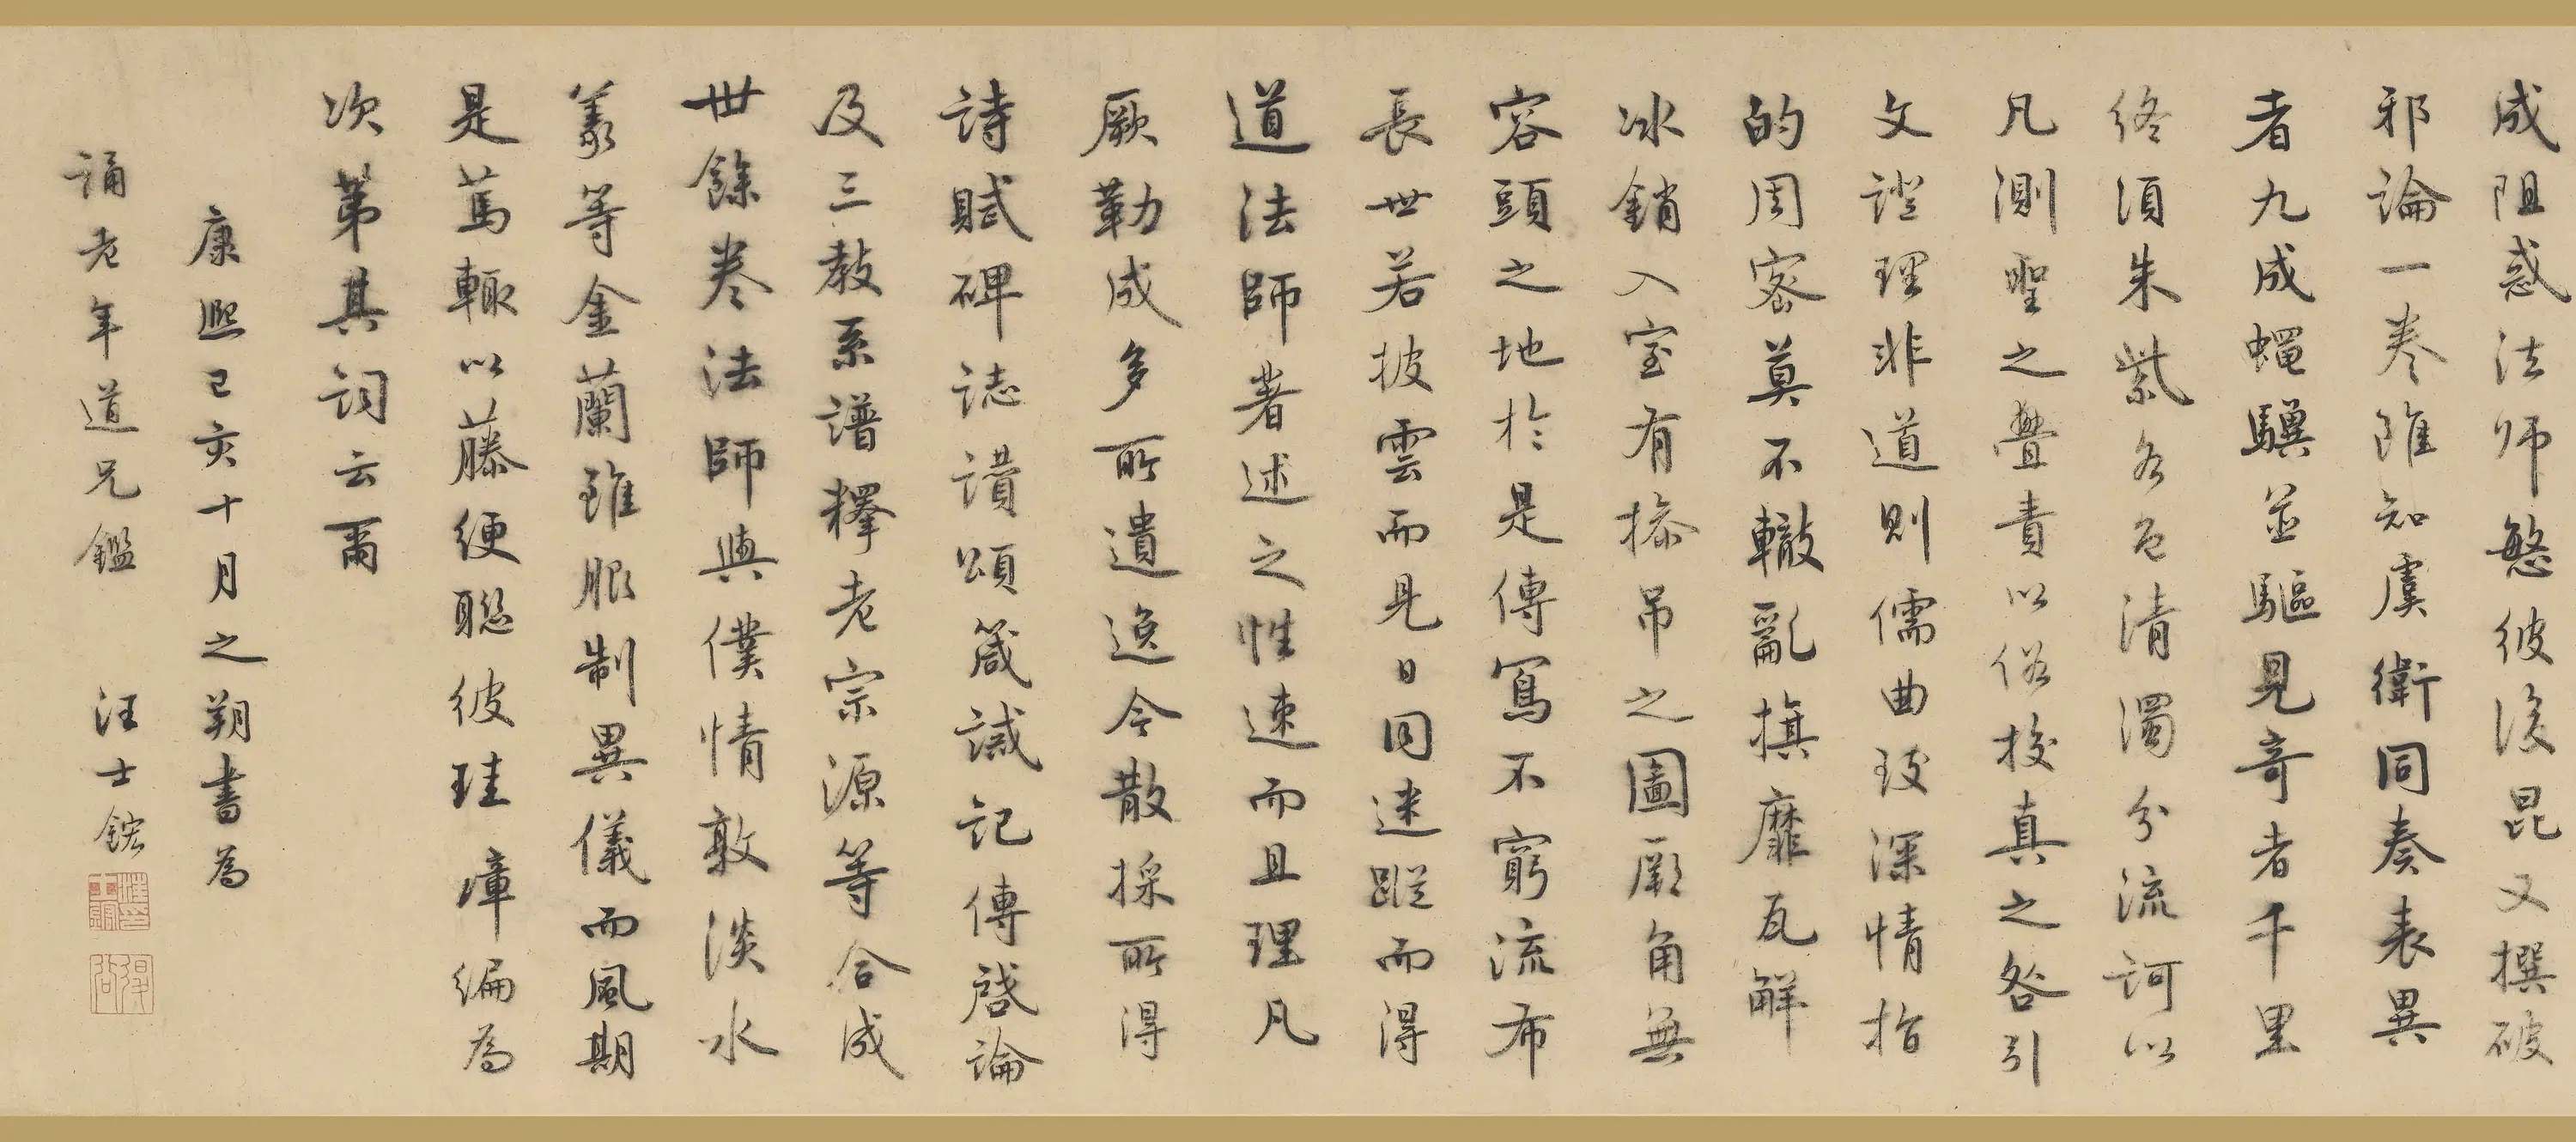 成阻惑法师愍彼後昆又撰破
邪論一卷雖知虞衛同奏表異
者九成蠅驥並驅見奇者千里
終須朱紫各色清濁分流訶以
凡測聖之舋責以俗校真之咎引
文證理非道則儒曲致深情指
的周密莫不轍亂旗靡瓦解
冰銷入室有操吊之圖厥角無
容頭之地於是傳寫不窮流布
長世若披雲而見日同迷蹤而得
道法師著述之性速而且理凡
厥勒成多所遺逸今散採所得
詩賦碑誌讚頌箴誡記傳啓論
及三教系譜釋老宗源等合成
世餘卷法師與僕情敦淡水
義等金蘭雖服制異儀而風期
是篤輒以藤緶聯彼珪璋編為
次第其詞云爾
康熙己亥十月之朔書為
誦老年道兄鑑 汪士鋐